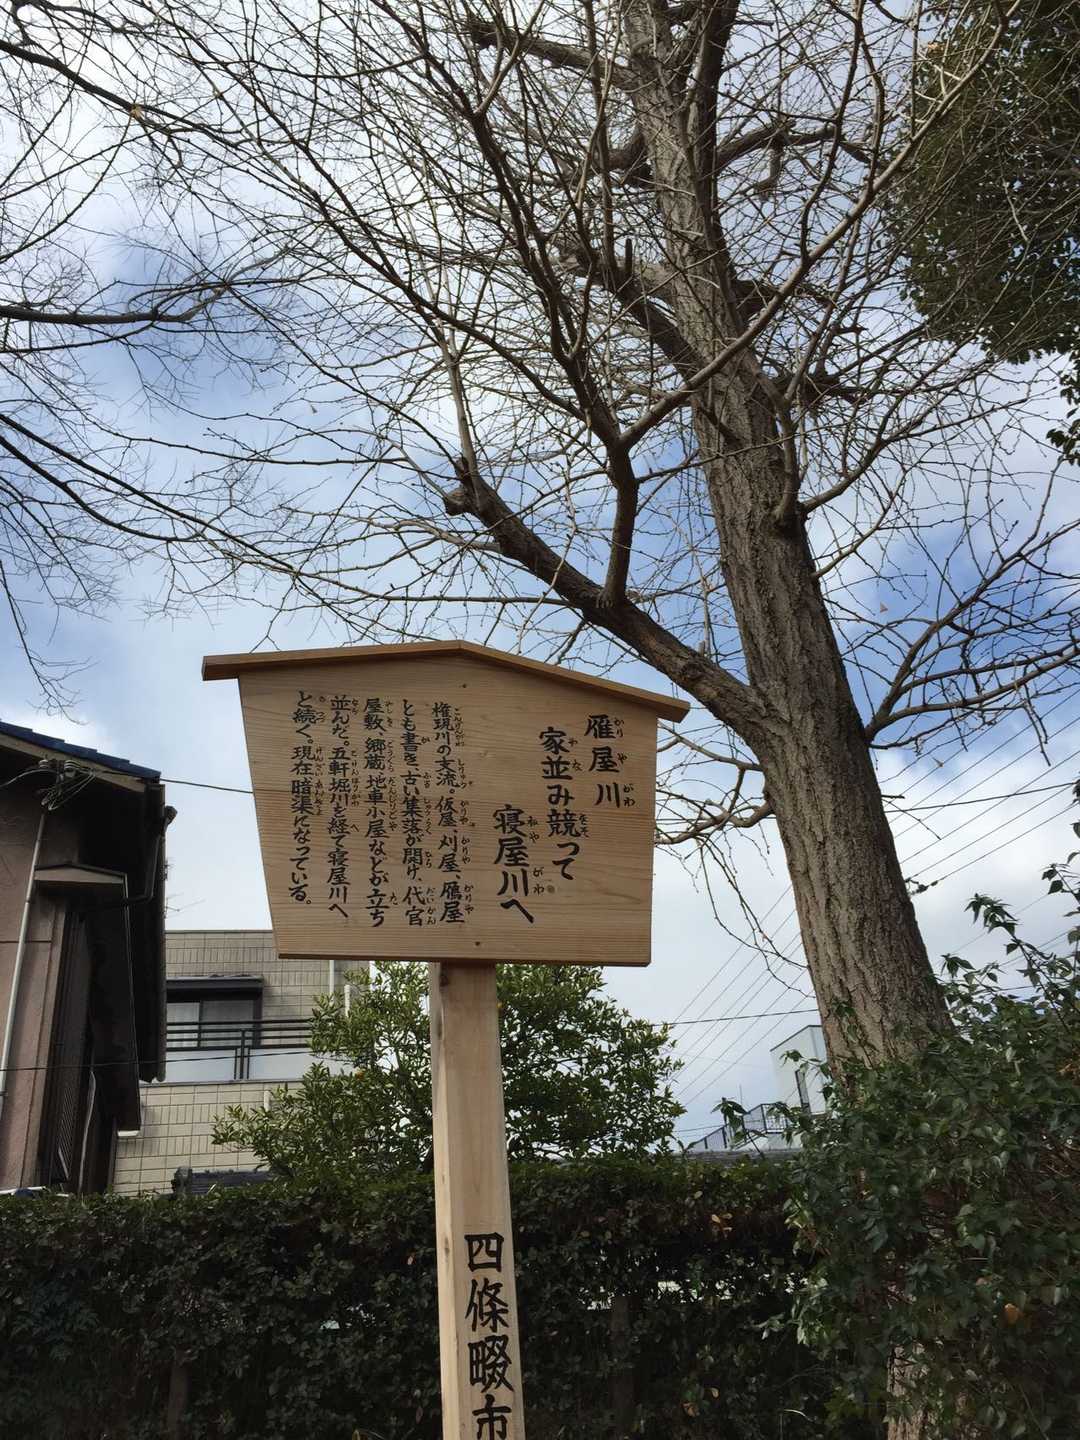 雁屋川
家並み競って
寝屋川へ
権現川の支流。仮屋、刈屋、雁屋
とも書き、古い集落が開け、代官
屋敷、郷蔵、地車小屋などが立ち
並んだ。五軒堀川を経て寝屋川へ
と続く。現在暗渠になっている。
四條畷市